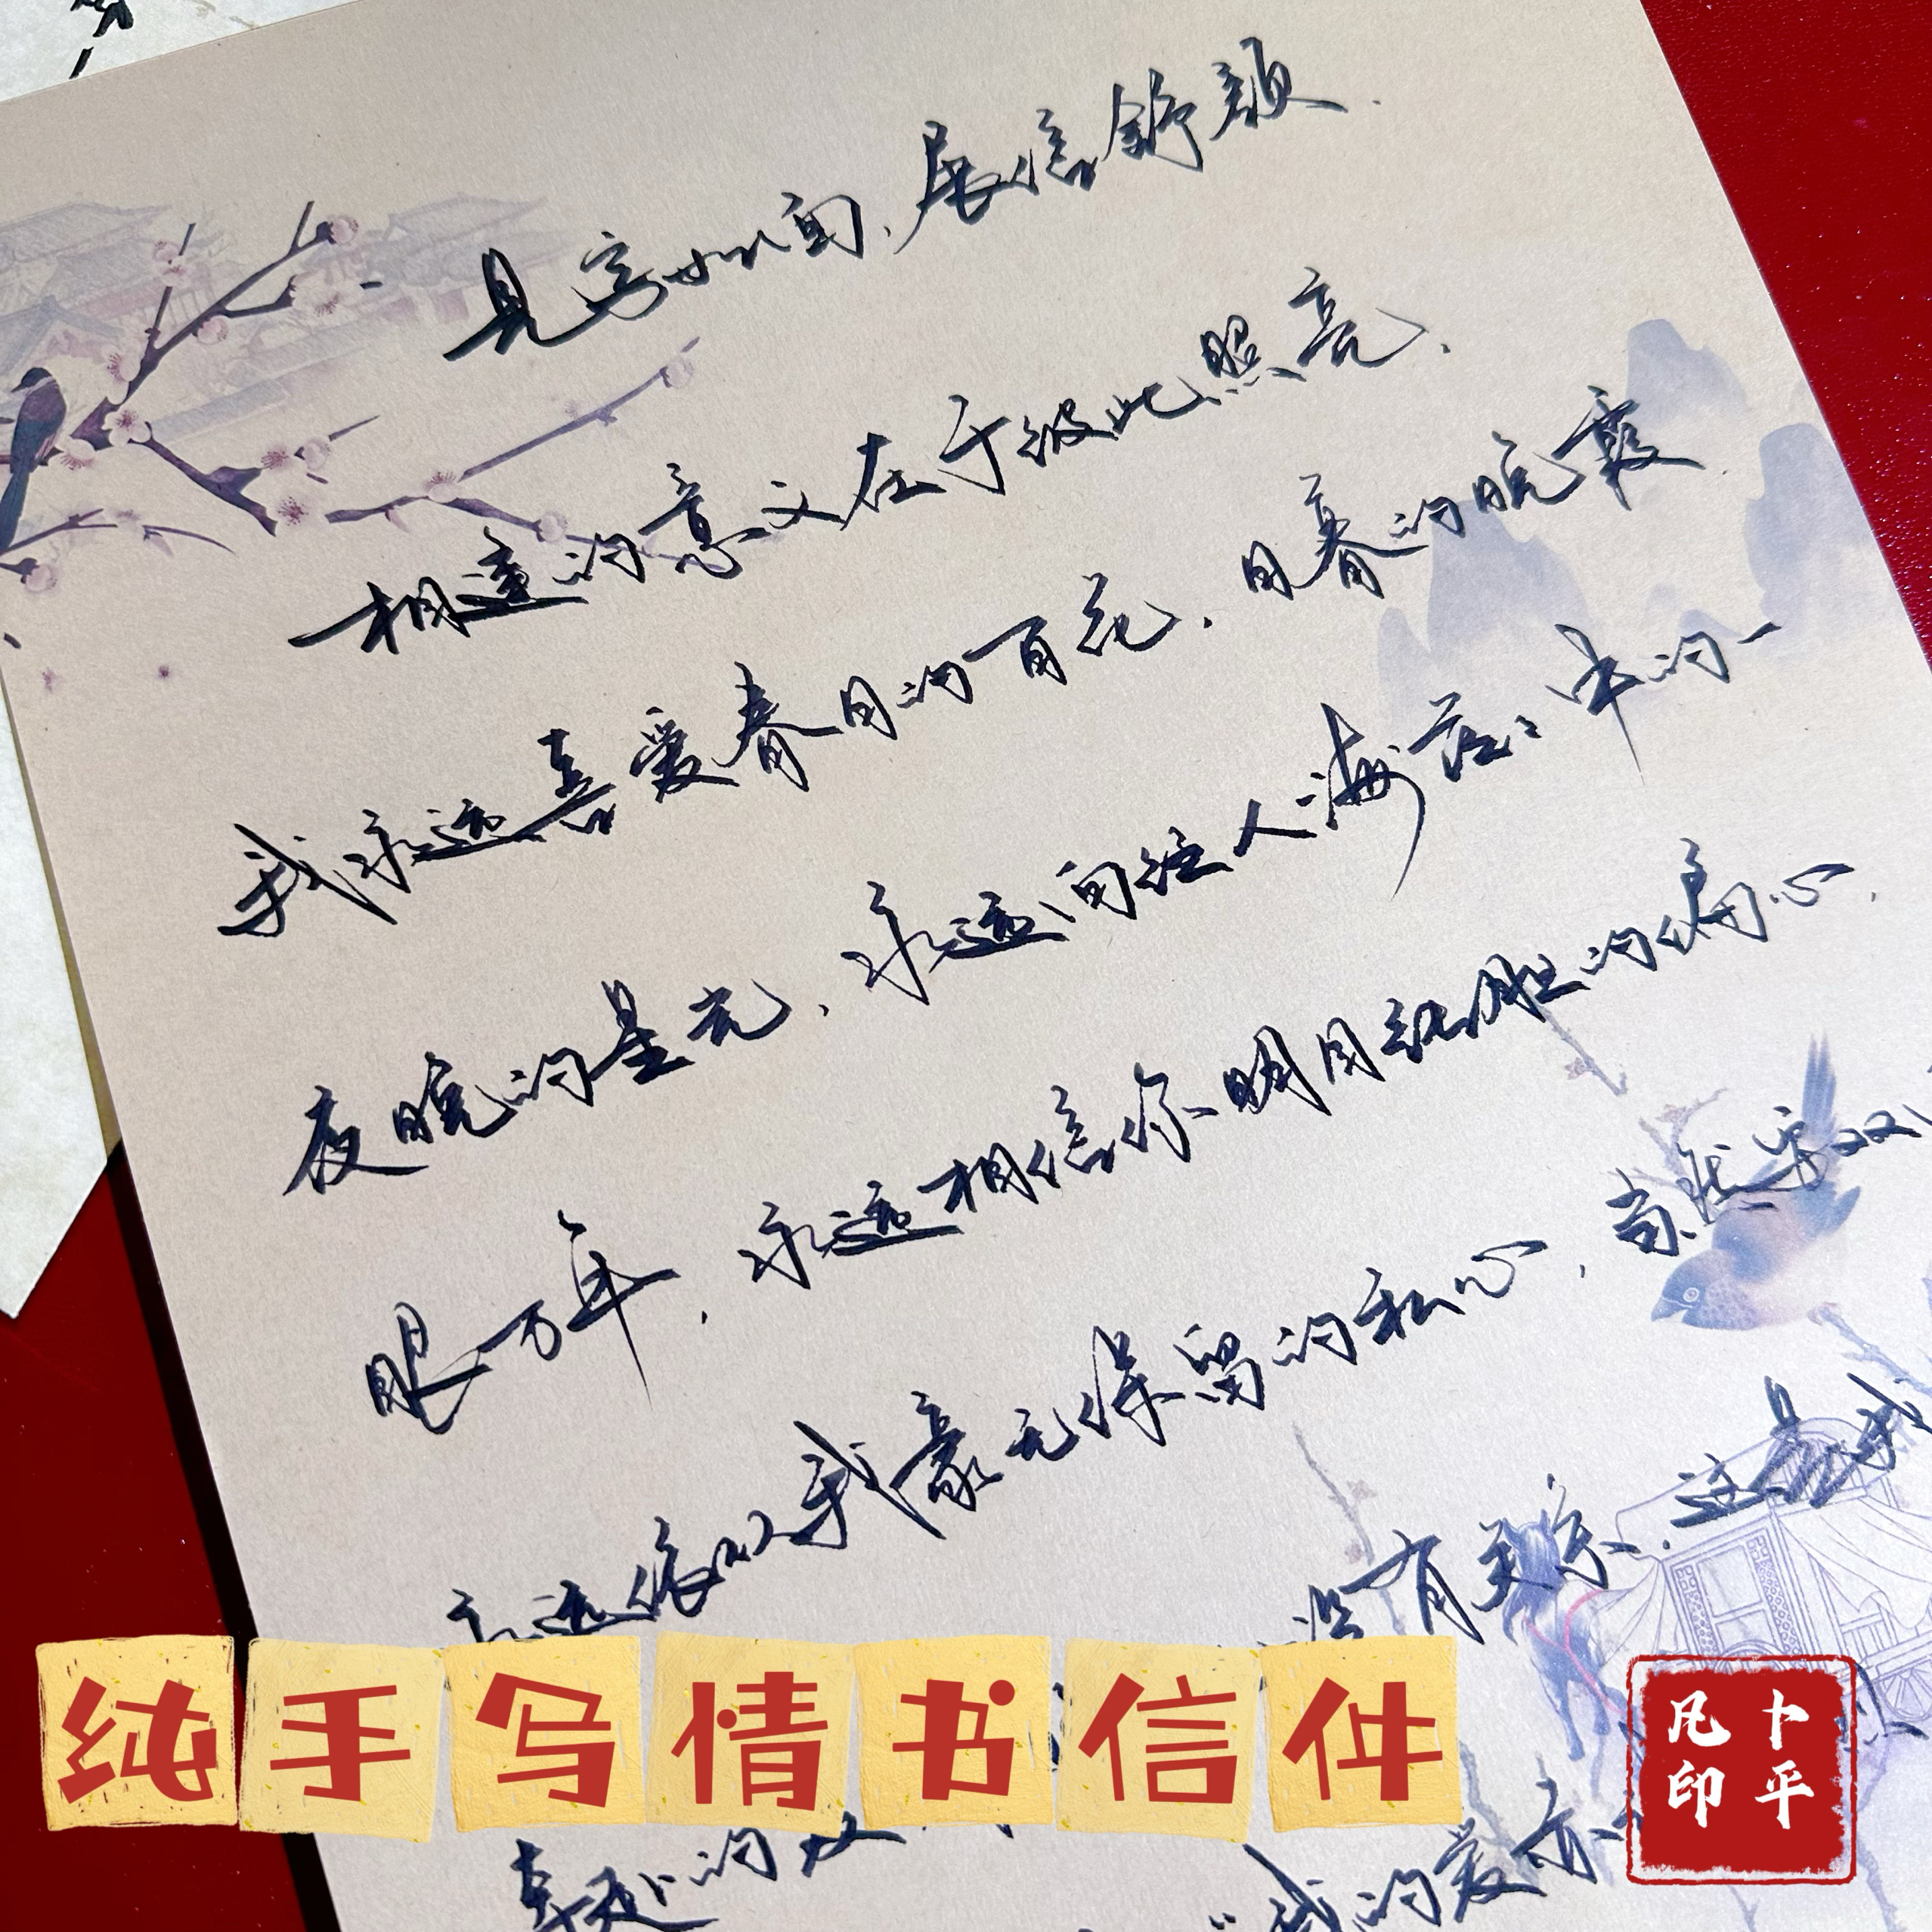 见字如面，展信舒颜.
相逢的意义在于彼此照亮，
我永远喜爱春日的百花，日暮的晚霞
夜晚的星光，永远向往人海茫茫中的一
眼万年，永远相信你明目张胆的偏心，
永远依以我毫无保留的私心，当我字双
没有关系，这是我
的双
我的爱亦
纯手写情书信件
卜平
凡印